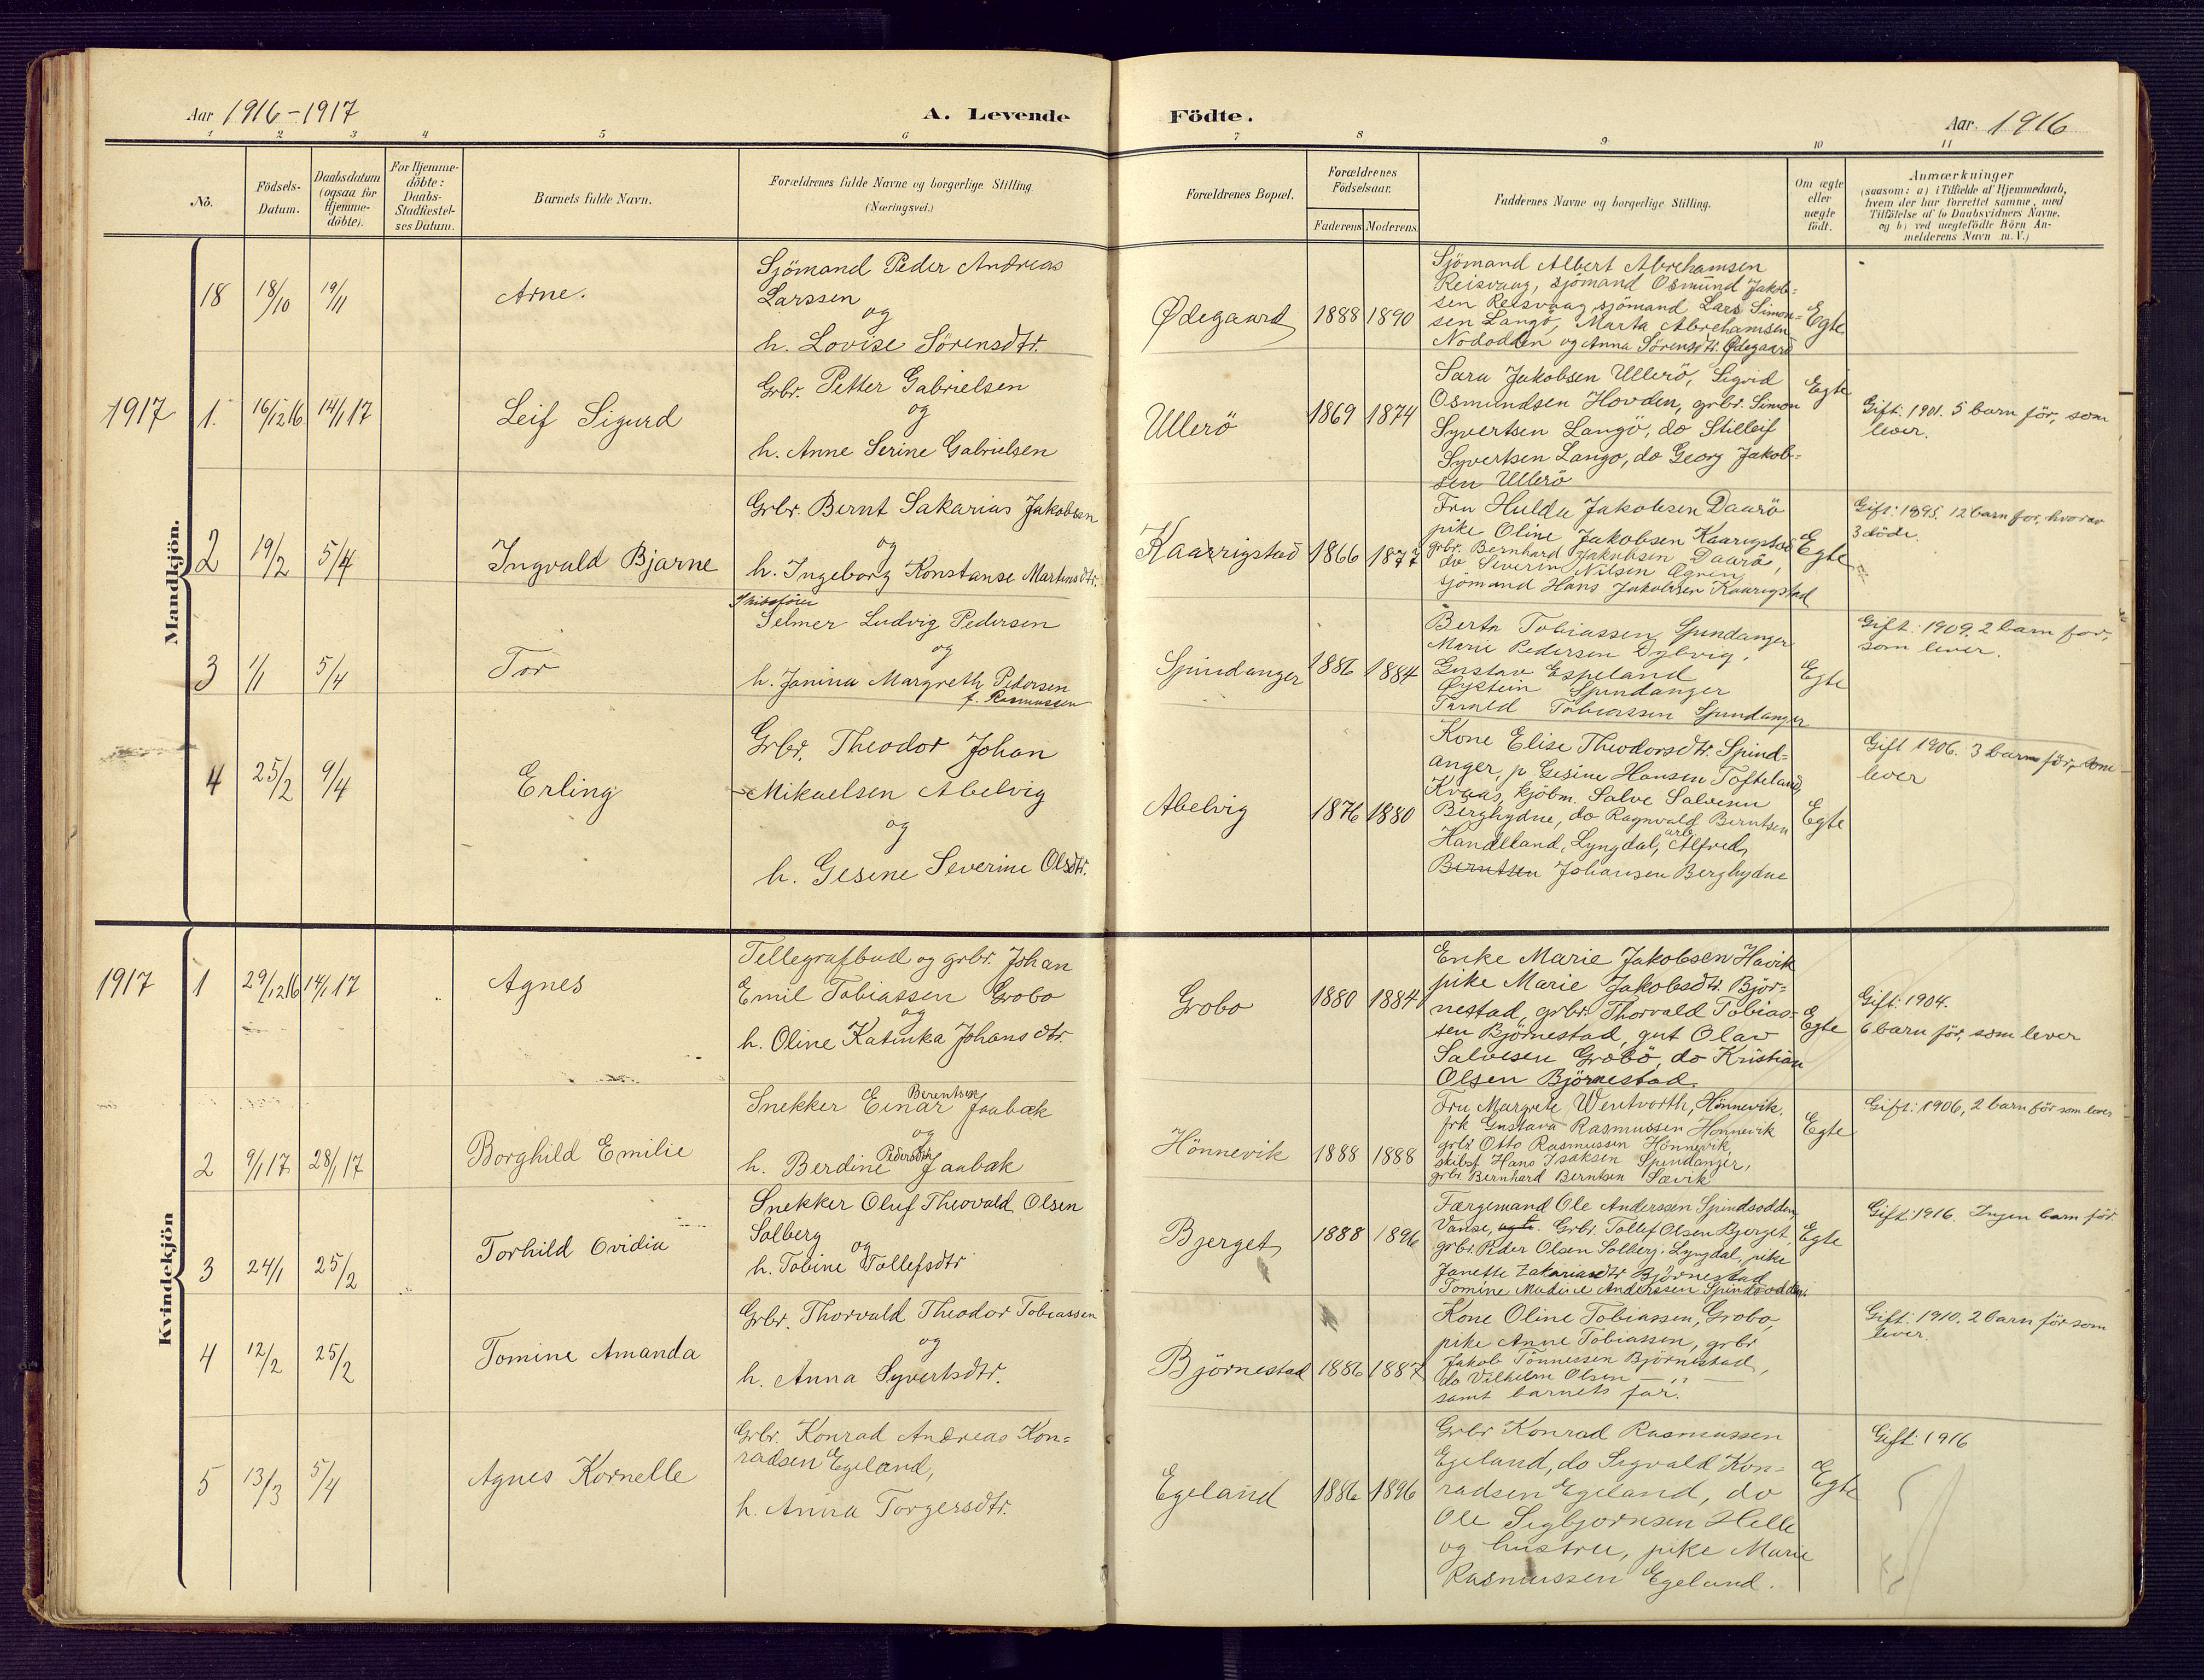 Aar 1916-1917
A. Levende
Födte.
Aar. 1916
1 2 3 4 5 6 7 8 9 10 11
No.
Födsels-
Datum.
Daabsdatum
(ogsaa for
Hjemme-
döbte).
For Hjemme-
döbte:
Daabs-
Stadfæstel-
ses Datum.
Barnets fulde Navn.
Forældrenes fulde Navne og borgerlige Stilling.
(Næringsvei.)
Forældrenes Bopæl.
Forældrenes
Födselsaar.
Faderens. Moderens.
Faddernes Navne og borgerlige Stilling.
Om ægte
eller
uægte
født.
Anmærkninger
(saasom: a) i Tilfælde af Hjemmedaab,
hvem der har forrettet samme, med
Tilföielse af to Daabsvidners Navne,
og b) ved uægtefödte Börn An-
melderens Navn m. V.)
Mandkjön.
18
18/10
19/11
Arne.
Sjömand Peder Andreas
Larssen
og
h. Lovise Sörensdtr.
Ødegaard
1888
1890
Sjömand Albert Abrehamsen
Reisvaag, sjömand Osmund Jakob=
sen Reisvaag sjömand Lars Simon=
sen Langö, Marta Abrehamsen
Nododden og Anna Sörensdtr. Ødegaard
Egte
1917
1.
16/12 16
14/1 17
Leif Sigurd
Grbr. Petter Gabrielsen
og
h. Anne Serine Gabrielsen
Ullerö
1869
1874
Sara Jakobsen Ullerö, Sigvid
Osmundsen Hovden, grbr. Simon
Syvertsen Langö, do Stilleif
Syvertsen Lango, do Georg Jakob=
sen Ullerö
Egte
Gift: 1901. 5 barn för, som
lever.
2
19/2
5/4
Ingvald Bjarne
Grbr. Bernt Sakarias Jakobsen
og
h. Ingeborg Konstanse Martinsdtr.
Kaarrigstad
1866
1877
Fru Hulda Jakobsen Daarö
pike Oline Jakobsen Kaarigstad
grbr. Bernhard Jakobsen Daarö,
do Severin Nilsen
sjömand Hans Jakobsen Kaarigstad
Egte
Gift: 1895. 12 barn for, hvorav
3 döde.
3
1/1
5/4
Tor
Skibsförer
Selmer Ludvig Pedersen
og
h. Janina Margreth Pedersen
f. Rasmussen
Spindanger
1886
1884
Berta Tobiassen Spindanger
Marie Pedersen Dybvig,
Gustav Espeland
Øystein Spindanger
Tobiassen Spindanger
Egte
Gift: 1909. 2 barn for,
som lever.
4
25/2
9/4
Erling
Grbr. Theodor Johan
Mikaelsen Abelvig
og
h. Gesine Severine Olsdtr.
Abelvig
1876
1880
Kone Elise Theodorsdtr. Spind=
anger, p. Gesine Hansen Tofteland,
Kvaas, kjöbm. Salve Salvesen
Berghydne, do Ragnvald Berntsen
Handelland, Lyngdal, arb. Alfred
Berntsen Johansen Berghydne
Egte
Gift 1906. 3 barn för, som
lever
Kvindekjön
1917
1
29/12 16
14/1 17
Agnes
Tellegrafbud og grbr. Johan
Emil Tobiassen Grobo
og
h. Oline Katinka Johansdtr.
Grobo
1880
1884
Enke Marie Jakobsen Havik
pike Marie Jakobsdtr. Björ=
nestad, grbr. Thorvald Tobias=
sen Björnestad, gut Olav
Salvesen Grobö, do Kristian
Olsen Björnestad.
Egte
Gift: 1904.
6 barn för, som lever
2
9/1 17
28/1 17
Borghild Emilie
Snekker Einar Berentsen Jaabæk
og
h. Berdine Pedersdtr Jaabæk
Hönnevik
1888
1888
Fru Margrete Wentworth, Hönnevik.
frk Gustava Rasmussen Honnevik
grbr Otto Rasmussen Hönnevik,
skibsf Hans Isaksen Spindanger,
grbr Bernhard Berntsen Sævik
Egte
Gift: 1906, 2 barn för som lever
3
24/1
25/2
Torhild Ovidia
Snekker Oluf Theovald Olsen
Solberg
og
h. Tobine Tollefsdtr
Bjerget
1888
1896
Færgemand Ole Anderssen Spindsodden,
Vanse, Grbr. Tollef Olsen Bjerget,
grbr. Peder Olsen Solberg. Lyngdal, pike
Janette Zakariasdtr Björnestad
Tomine Anderssen Spindsodden
Egte
Gift: 1916. Ingen barn för.
4
12/2
25/2
Tomine Amanda
Grbr. Thorvald Theodor Tobiassen
og
h. Anna Syvertsdtr.
Björnestad
1886
1887
Kone Oline Tobiassen, Grobo,
pike Anne Tobiassen, grbr
Jakob Tönnessen Björnestad,
do Vilhelm Olsen — " —
samt barnets far.
Gift: 1910. 2 barn för som
lever.
5
13/3
5/4
Agnes Kornelle
Grbr. Konrad Andreas Kon=
radsen Egeland,
h. Anna Torgersdtr.
Egeland
1886
1896
Grbr Konrad Rasmussen
Egeland, do Sigvald Kon=
radsen Egeland, do
Ole Sigbjornsen Helle
og hustru, pike Marie
Rasmussen Egeland.
Egte
Gift: 1916